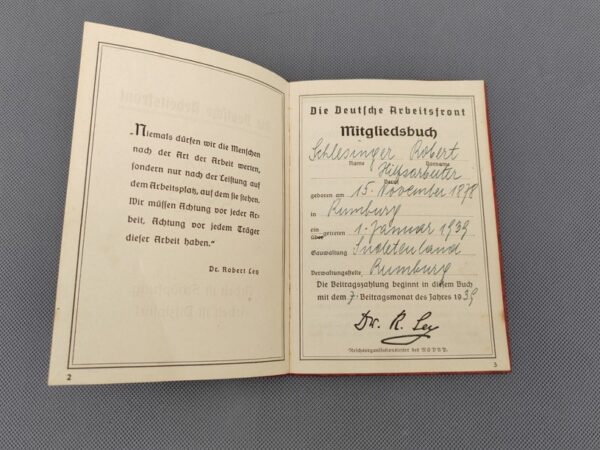 „Niemals dürfen wir die Menschen
nach der Art der Arbeit werten,
sondern nur nach der Leistung auf
dem Arbeitsplatz, auf dem sie stehen.
Wir müssen Achtung vor jeder Ar-
beit, Achtung vor jedem Träger
dieser Arbeit haben.“
Dr. Robert Ley
2
Die Deutsche Arbeitsfront
Mitgliedsbuch
Schlesinger Robert
Name Vorname
Hilfsarbeiter
Beruf
geboren am 15. November 1878
in Rumburg
ein getreten 1. Januar 1939
über
Gauwaltung Sudetenland
Verwaltungsstelle Rumburg
Die Beitragszahlung beginnt in diesem Buch
mit dem 7. Beitragsmonat des Jahres 1939
Dr. R. Ley
Reichsorganisationsleiter der NSDAP.
3